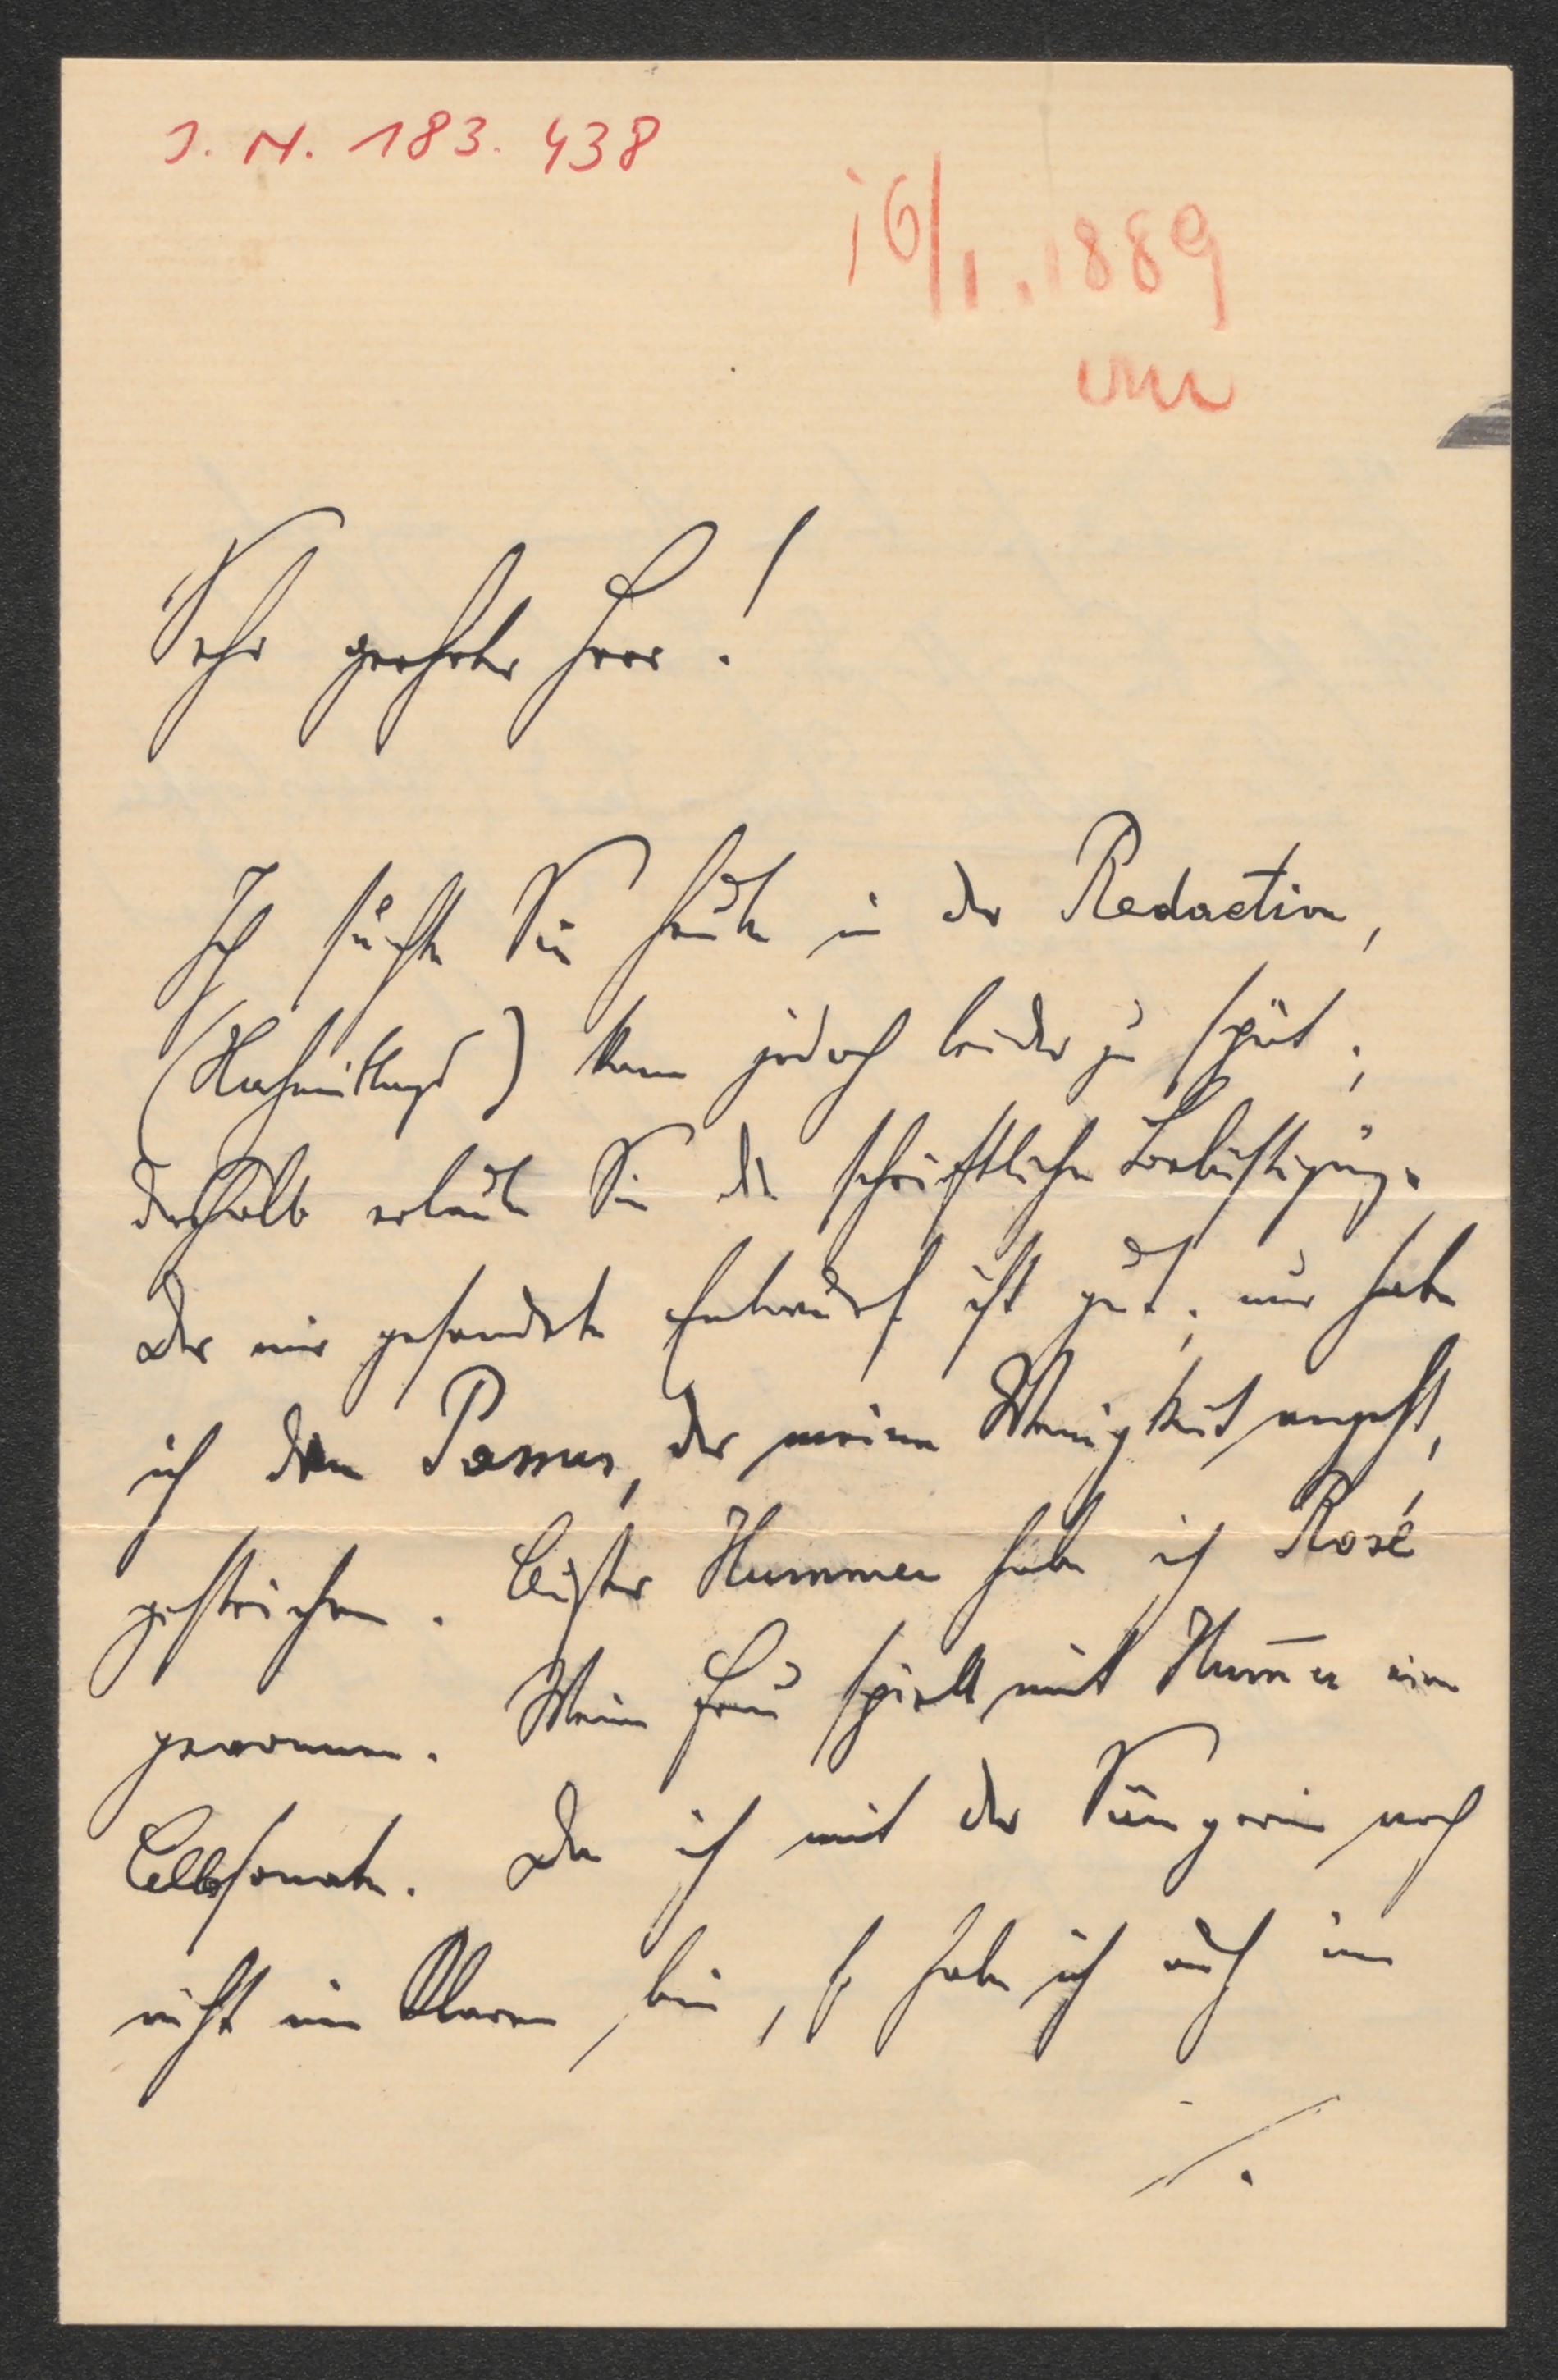 I. N. 183.438
16/1. 1889
Sehr geehrter Herr!
Ich suchte Sie heute in der Redaction,
(Nachmittags) kam jedoch leider zu spät;
deshalb erlauben Sie die schriftliche Belästigung.
Der mir gesendete Entwurf ist gut; nur habe
ich den Passus, der meine Wenigkeit angeht,
gestrichen. Außer Hummer habe ich Rosé
gewonnen. Meine Frau spielt mit Hum̄er eine
Cellosonate. Da ich mit der Sängerin noch
nicht im Klaren bin, so habe ich auch im
/.